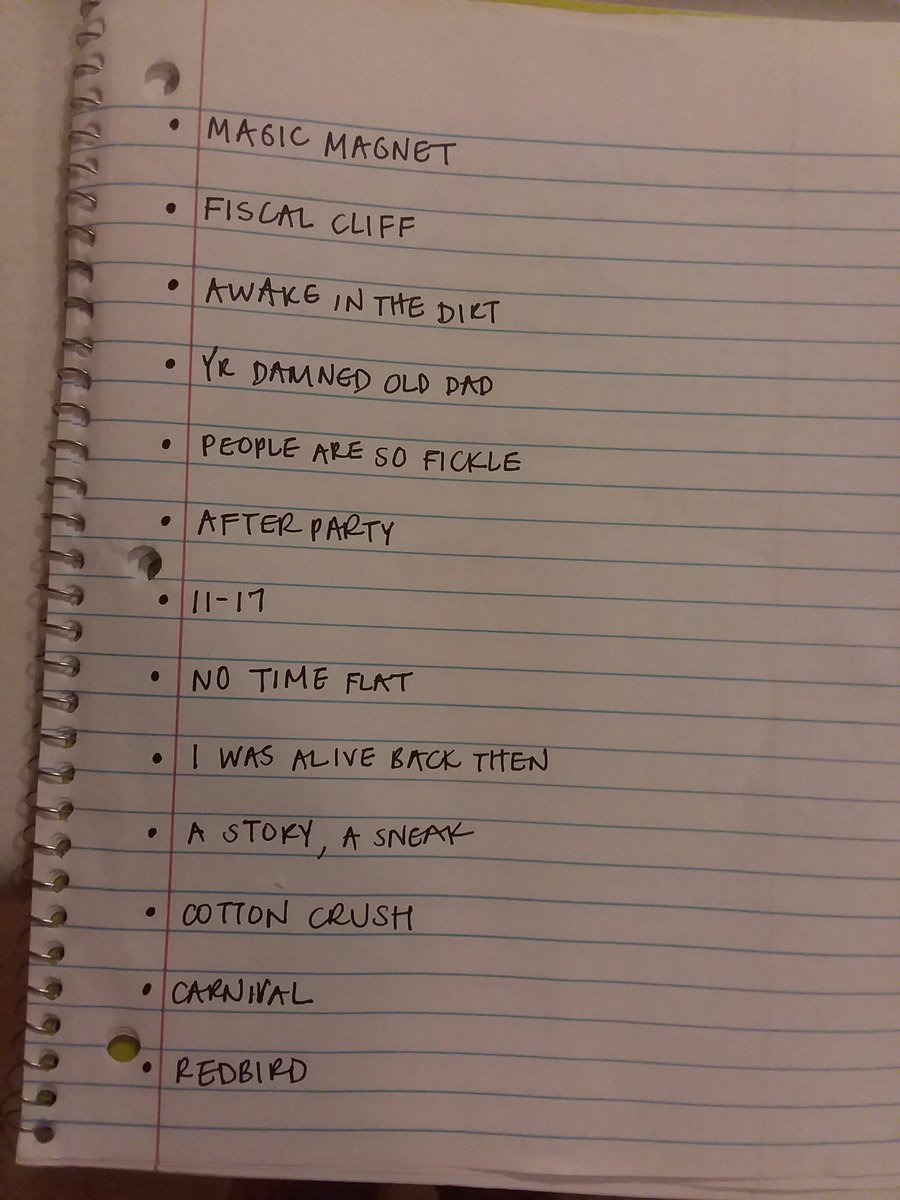 • MAGIC MAGNET
• FISCAL CLIFF
• AWAKE IN THE DIRT
• YR DAMNED OLD DAD
• PEOPLE ARE SO FICKLE
• AFTER PARTY
• 11-17
• NO TIME FLAT
• I WAS ALIVE BACK THEN
• A STORY, A SNEAK
• COTTON CRUSH
• CARNIVAL
• REDBIRD